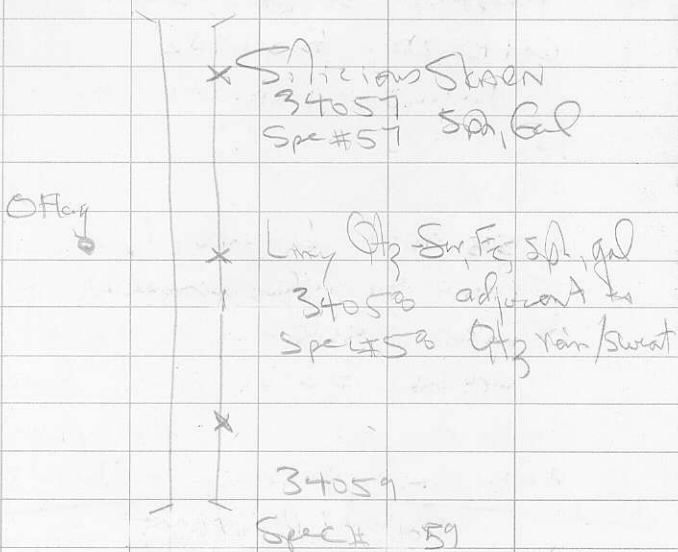 Silicious SKARN
34057
Spec #57 Sph, Gal
O Flag
Limy Qtz - Fe, sph, gal
34058 adjacent to
Spec #58 Qtz vein/sweat
34059
Spec # 59